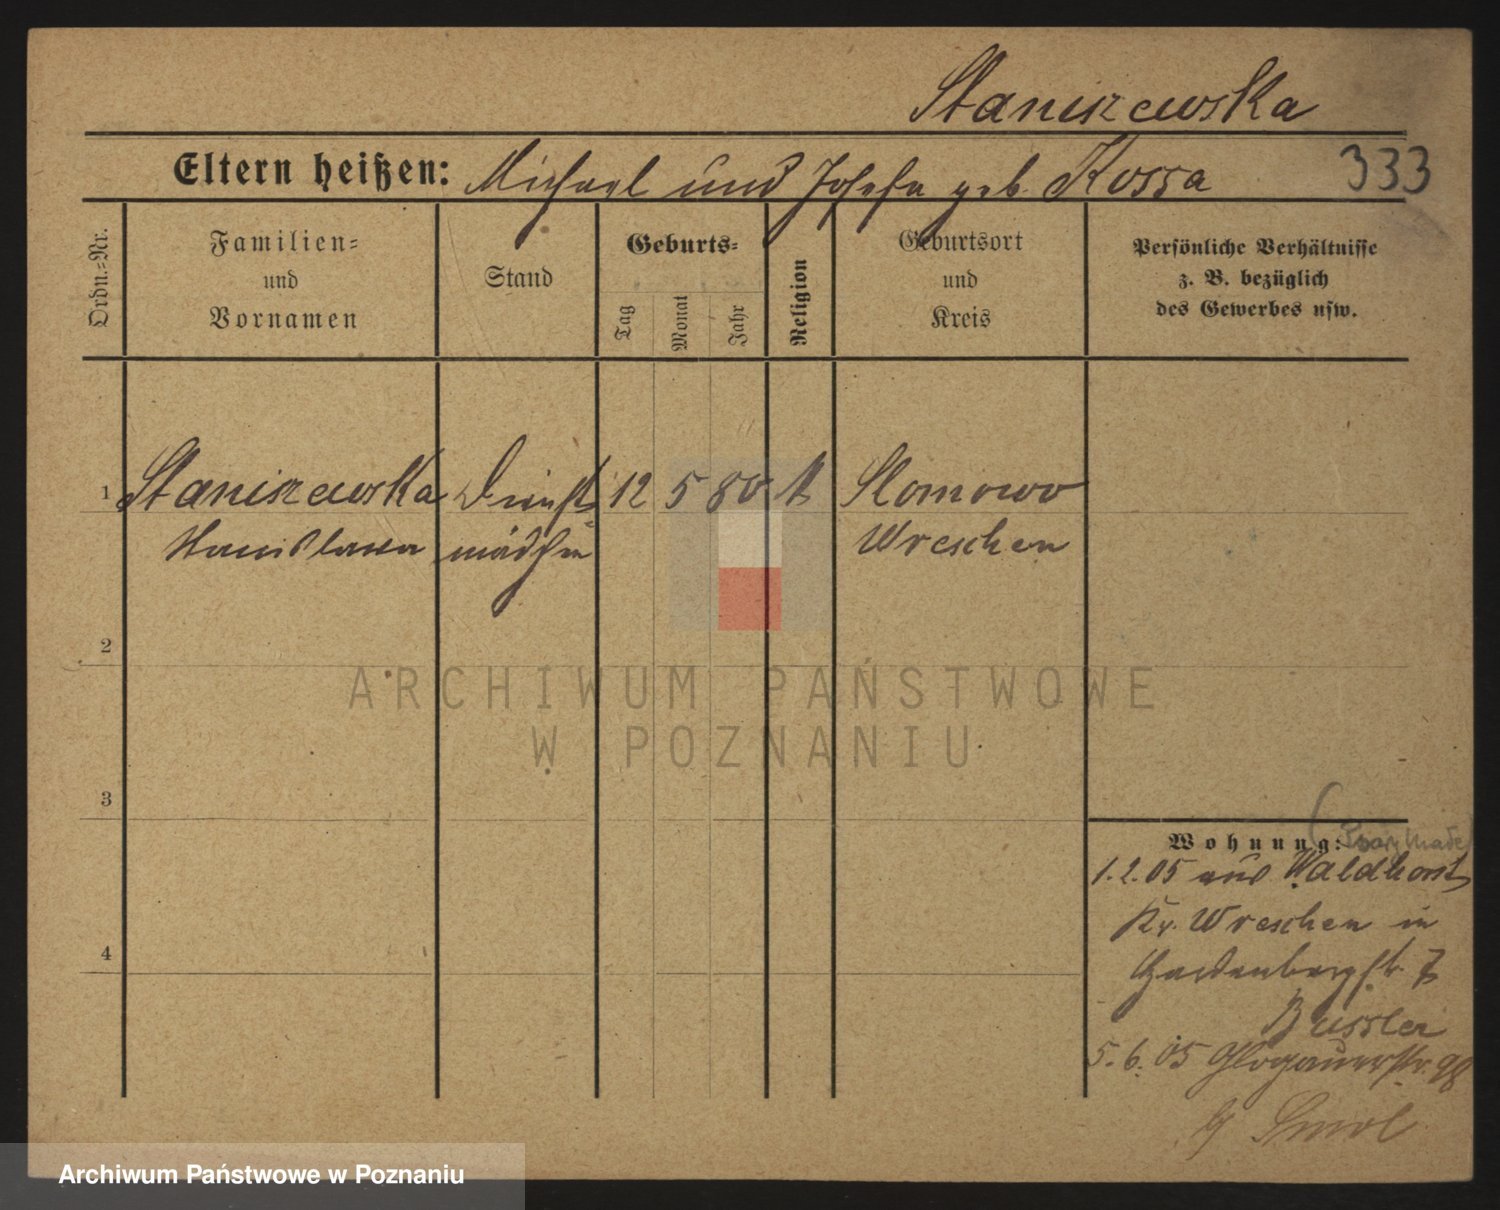 Staniszewska
Eltern heißen: Michael und Josefa geb. Kossa 333
Ordn.=Nr.
Familien=
und
Vornamen
Stand
Geburts=
Tag
Monat
Jahr
Religion
Geburtsort
und
Kreis
Persönliche Verhältnisse
z. B. bezüglich
des Gewerbes usw.
1 Staniszewska Dienst 12 5 80 k Slomowo
Stanislawa mädchen Wreschen
2
3
4
Wohnung:
1.2.05 aus Waldhorst
Kr. Wreschen in
7
Bussler
5.6.05 Glogauerstr. 98
ARCHIWUM PAŃSTWOWE
W POZNANIU
Archiwum Państwowe w Poznaniu